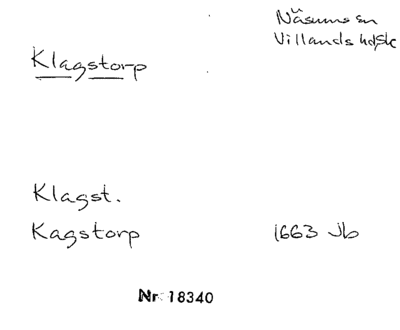 Näsums sn
Villands hd, Sk
Klagstorp
Klagst.
Kagstorp 1663 Jb
Nr 18340